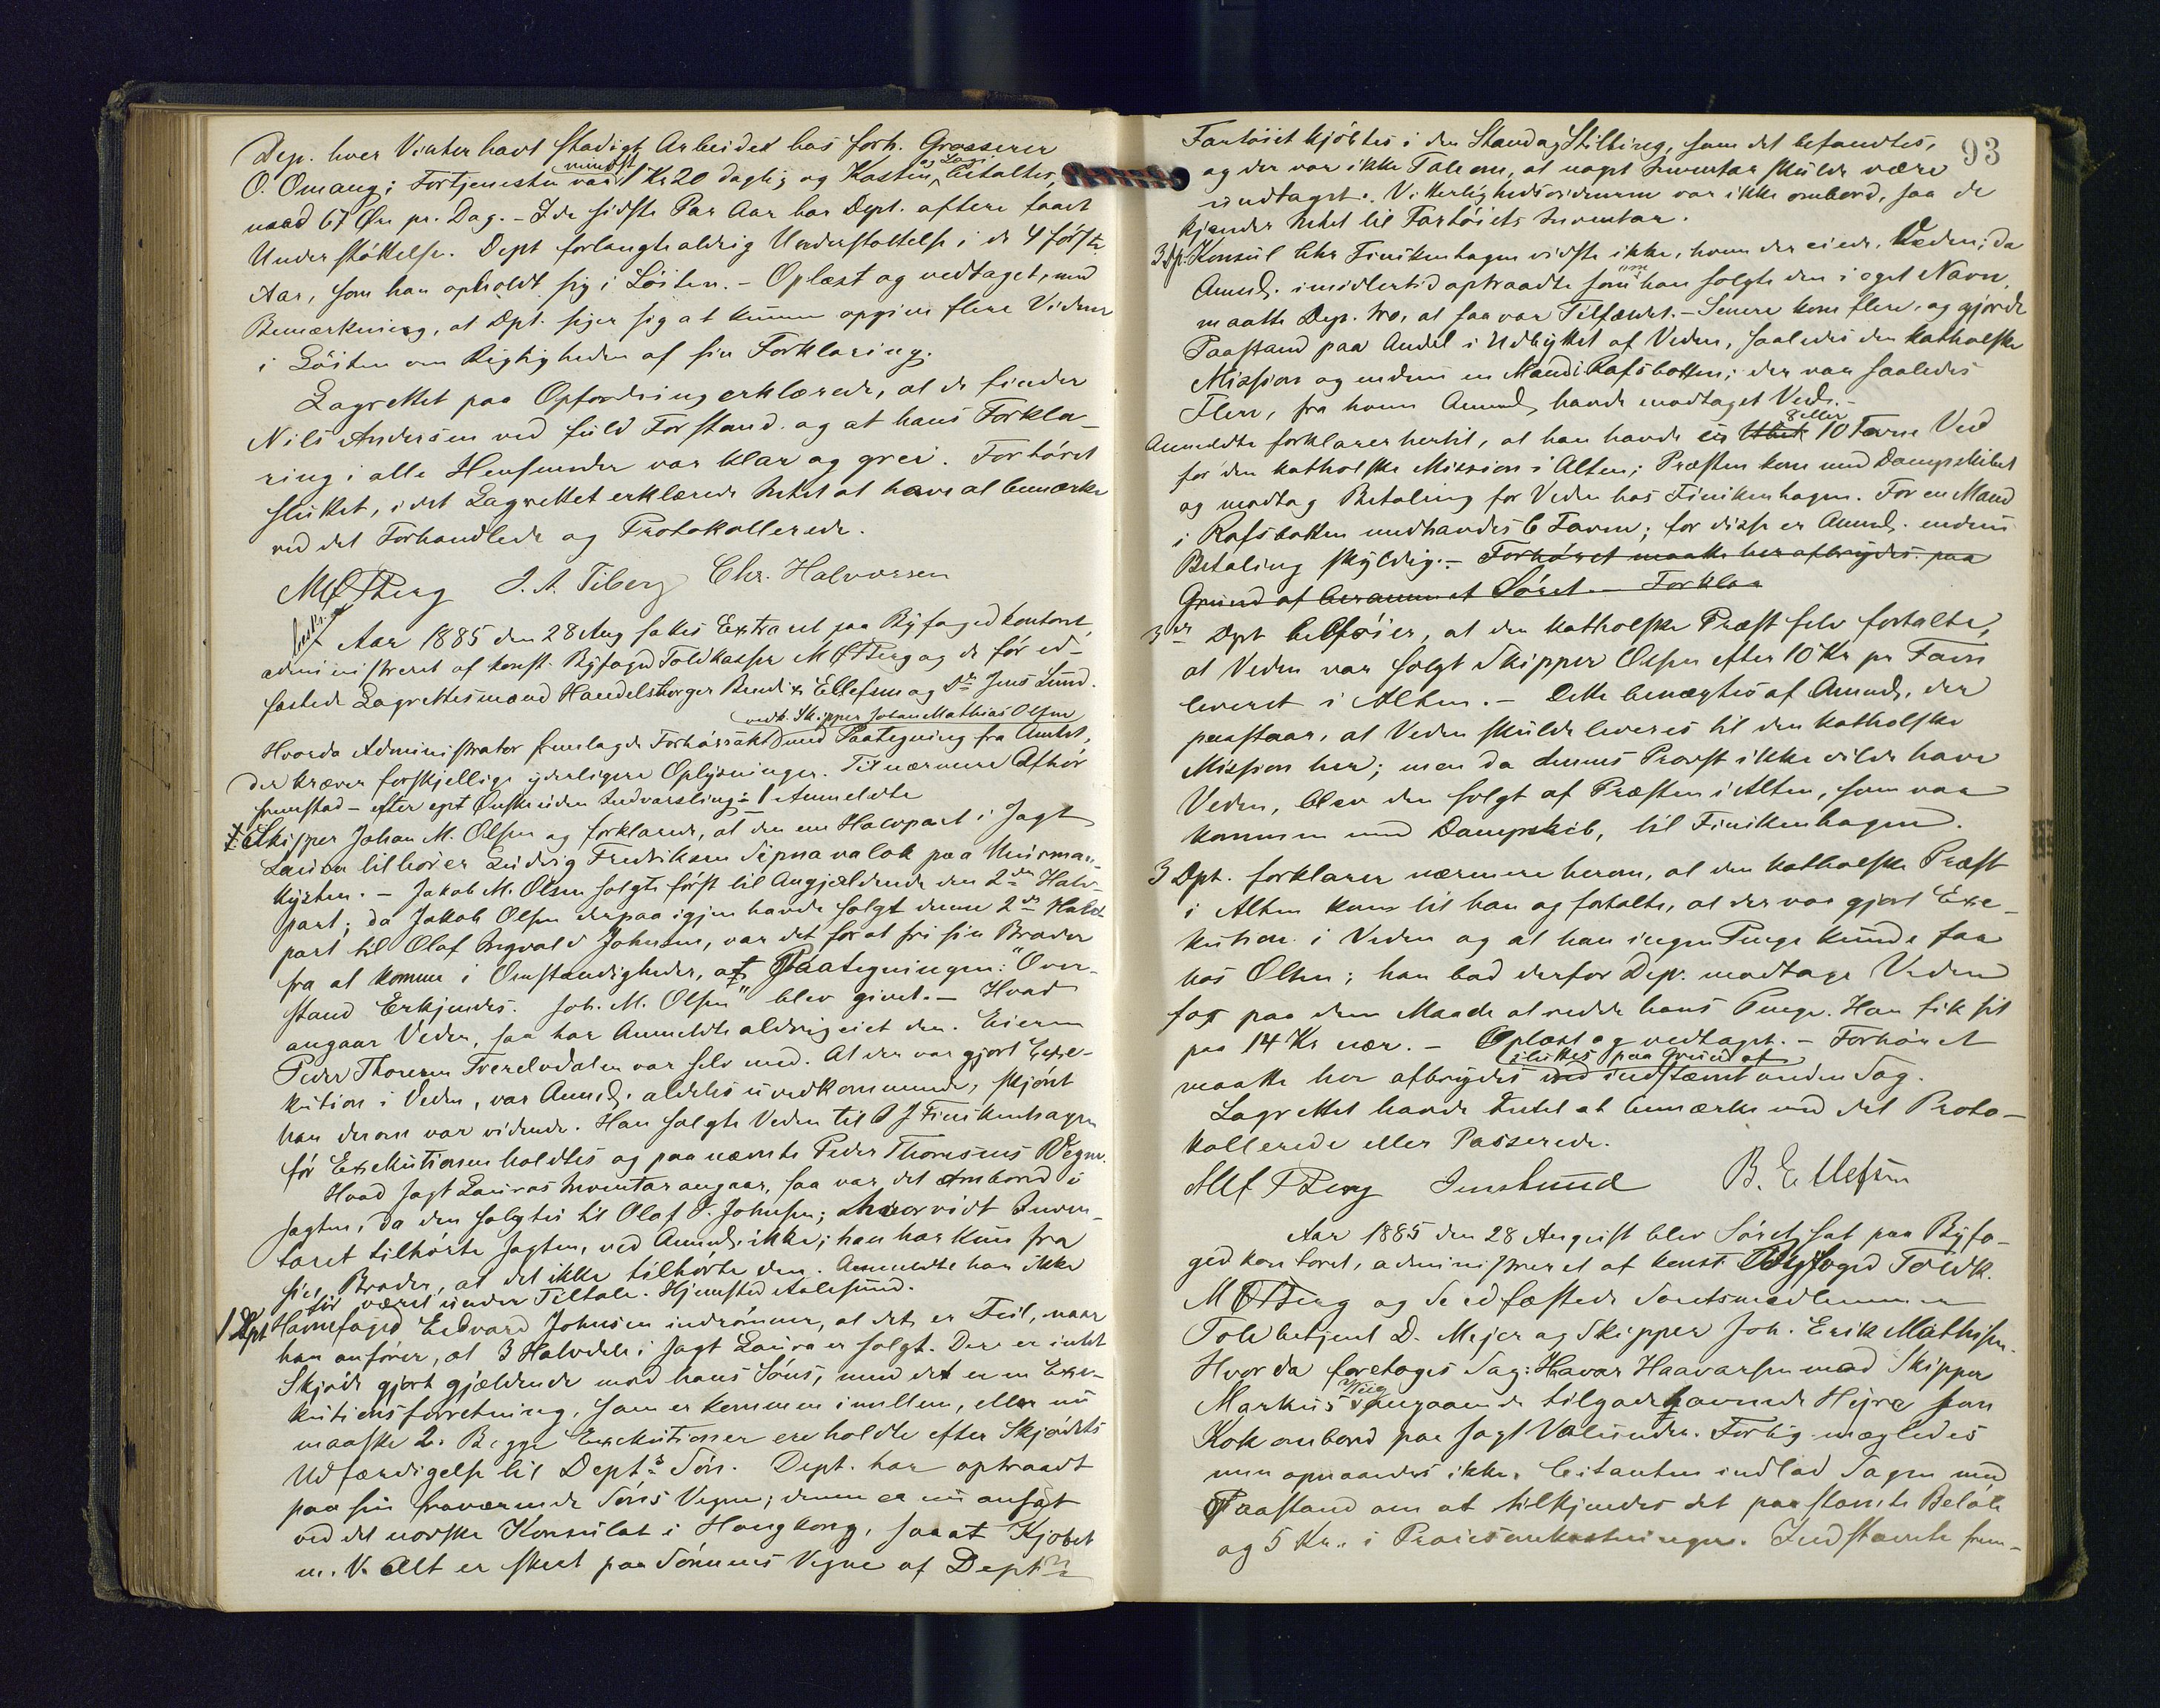 Dep. hver Vinter havt stadigt Arbeidet hos forh. Grosserer
O. Omang; Fortjenesten var mindst 1 Kr 20 daglig og Kosten og Losi betaltes
med 67 Øre pr. Dag. – I de sidste Par Aar har Dept. oftere faaet
Understøttelse. Dept forlangte aldrig Understøttelse i de 4 første
Aar, som han opholdt sig i Løiten. – Oplæst og vedtaget, med
Bemærkning, at Dpt. siger sig at kunne opgive flere Vidner
i Löiten om Rigtigheden af sin Forklaring.
Lagrettet paa Opfordring erklærede, at de finder
Nils Andersen ved fuld Forstand og at hans Forkla-
ring i alle Henseender var klar og grei. Forhöret
sluttet, idet Lagrettet erklærede Intet at have at bemærke
ved det Forhandlede og Protokollerede.
M Ø Berg J. A. Tiberg Chr. Halvorsen
Aar 1885 den 28 Aug sattes Extraret paa Byfogedkontoret,
administreret af konst. Byfoged Toldkasser M Ø Berg og de før ed-
fæstede Lagrettesmænd Handelsborger Bendix Ellefsen og Dr. Jens Lund.
Hvorda Administrator fremlagde Forhörsakt vedk. Skipper Johan Mathias Olsen med Paategning fra Amtet,
der kræver forskjellige yderligere Oplysninger. Til nærmere Afhör
fremstod – efter eget Ønske uden Indvarsling: 1 Anmeldte
Skipper Johan M. Olsen og forklarede, at den ene Halvpart i Jagt
Laura tilhører Ludvig Fredriksen Sipnavalok paa Murman-
kysten. – Jakob M. Olsen solgte først til Angjældende den 2den Halv-
part; da Jakob Olsen derpaa igjen havde solgt denne 2de Halv-
part til Olaf Ingvald Johnsen, var det for at fri sin Broder
fra at komme i Omstændigheder, at Paategningen: "Over-
stand Erkjendes. Joh. M. Olsen" blev givet. – Hvad
angaar Veden, saa har Anmeldte aldrig eiet den. Eieren
Peder Thoresen Tverelvdalen var selv med. At der var gjort Exe-
kution i Veden, var Anmd. aldeles uvedkommende, skjønt
han derom var vidende. Han solgte Veden til C J Finckenhagen
før Exekutionen holdtes og paa nævnte Peder Thoresens Vegne.
Hvad Jagt Lauras Inventar angaar, saa var det ombord i
Jagten, da den solgtes til Olaf I. Johnsen; hvorvidt Inven-
taret tilhørte Jagten, ved Anmd. ikke; han har kun fra
sin Broder, at det ikke tilhørte den. Anmeldte har ikke
før været under Tiltale. Hjemsted Aalesund.
1 Dpt Havnefoged Edvard Johnsen indrömmer, at det er Feil, naar
han anfører, at 3 Halvdele i Jagt Laura er solgt. Der er intet
Skjøde gjort gjældende mod hans Söns, men det er en Exe-
kutionsforretning, som er kommen imellem, eller nu
maaske 2. Begge Exekutioner ere holdte efter Skjødets
Udfærdigelse til Depts Sön. Dept. har optraadt
paa sin fraværende Söns Vegne; denne er nu ansat
ved det norske Konsulat i Hongkong, saa at Kjøbet
m. V. Alt er skeet paa Sönnens Vegne af Deptn
93
Fartöiet kjöbtes i den Stand og Stilling, som det befandtes,
og der var ikke Tale om, at noget Inventar skulde være
undtaget. Vitterlighedsvidnerne var ikke ombord, saa de
kjender Intet til Fartöiets Inventar.
3 Dp. Konsul Chr Finckenhagen vidste ikke, hvem der eiede Veden; da
Anmd. imidlertid optraadte som om han solgte den i eget Navn,
maatte Dep. tro, at saa var Tilfældet. – Senere kom flere og gjorde
Paastand paa Andel i Udbyttet af Veden, saaledes den katholske
Mission og endnu en Mand i Rafsbotten; der var saaledes
Flere, fra hvem Anmd. havde modtaget Ved. –
Anmeldte forklarer hertil, at han havde 8 eller 10 Favne Ved
for den katholske Mission i Alten; Præsten kom med Dampskibet
og modtog Betaling for Veden hos Finckenhagen. For en Mand
i Rafsbotten medhavdes 6 Favne; for disse er Anmd. endnu
Betaling skyldig. – Forhöret maatte her afbrydes paa
Grund af berammet Söret – Forklar
3de Dpt tilföier, at den katholske Præst selv fortalte,
at Veden var solgt Skipper Olsen efter 10 Kr pr Favn
leveret i Alten. – Dette benægtes af Anmd, der
paastaar, at Veden skulde leveres til den katholske
Mission her; men da dennes Provst ikke vilde have
Veden, blev den solgt af Præsten i Alten, som var
kommen med Dampskib, til Finckenhagen.
3 Dpt. forklarer nærmere herom, at den katholske Præst
i Alten kom til han og fortalte, at der var gjort Exe-
kution i Veden og at han ingen Penge kunde faa
hos Olsen; han bad derfor Dep. modtage Veden
for paa den Maade at redde hans Penge. Han fik sit
paa 14 Kr nær. – Oplæst og vedtaget. – Forhöret
maatte her afbrydes sluttes paa Grund af indstævnt anden Sag.
Lagrettet havde Intet at bemærke ved det Proto-
kollerede eller Passerede.
M Ø Berg Jens Lund B. Ellefsen
Aar 1885 den 28 August blev Söret sat paa Byfo-
gedkontoret, administreret af konst. Byfoged Toldk.
M Ø Berg og de edfæstede Soretsmedlemmer
Toldbetjent D. Mejer og Skipper Joh. Erik Mathisen.
Hvorda foretoges Sag: Havar Haavarsen mod Skipper
Markus Wiig angaaende tilgodehavende Hyre som
Kok ombord paa Jagt Valunder. Forlig mægledes
men opnaaedes ikke. Citanten indlod Sagen med
Paastand om at tilkjendes det paastævnte Beløb
og 5 Kr. i Procesomkostninger. Indstævnte frem-